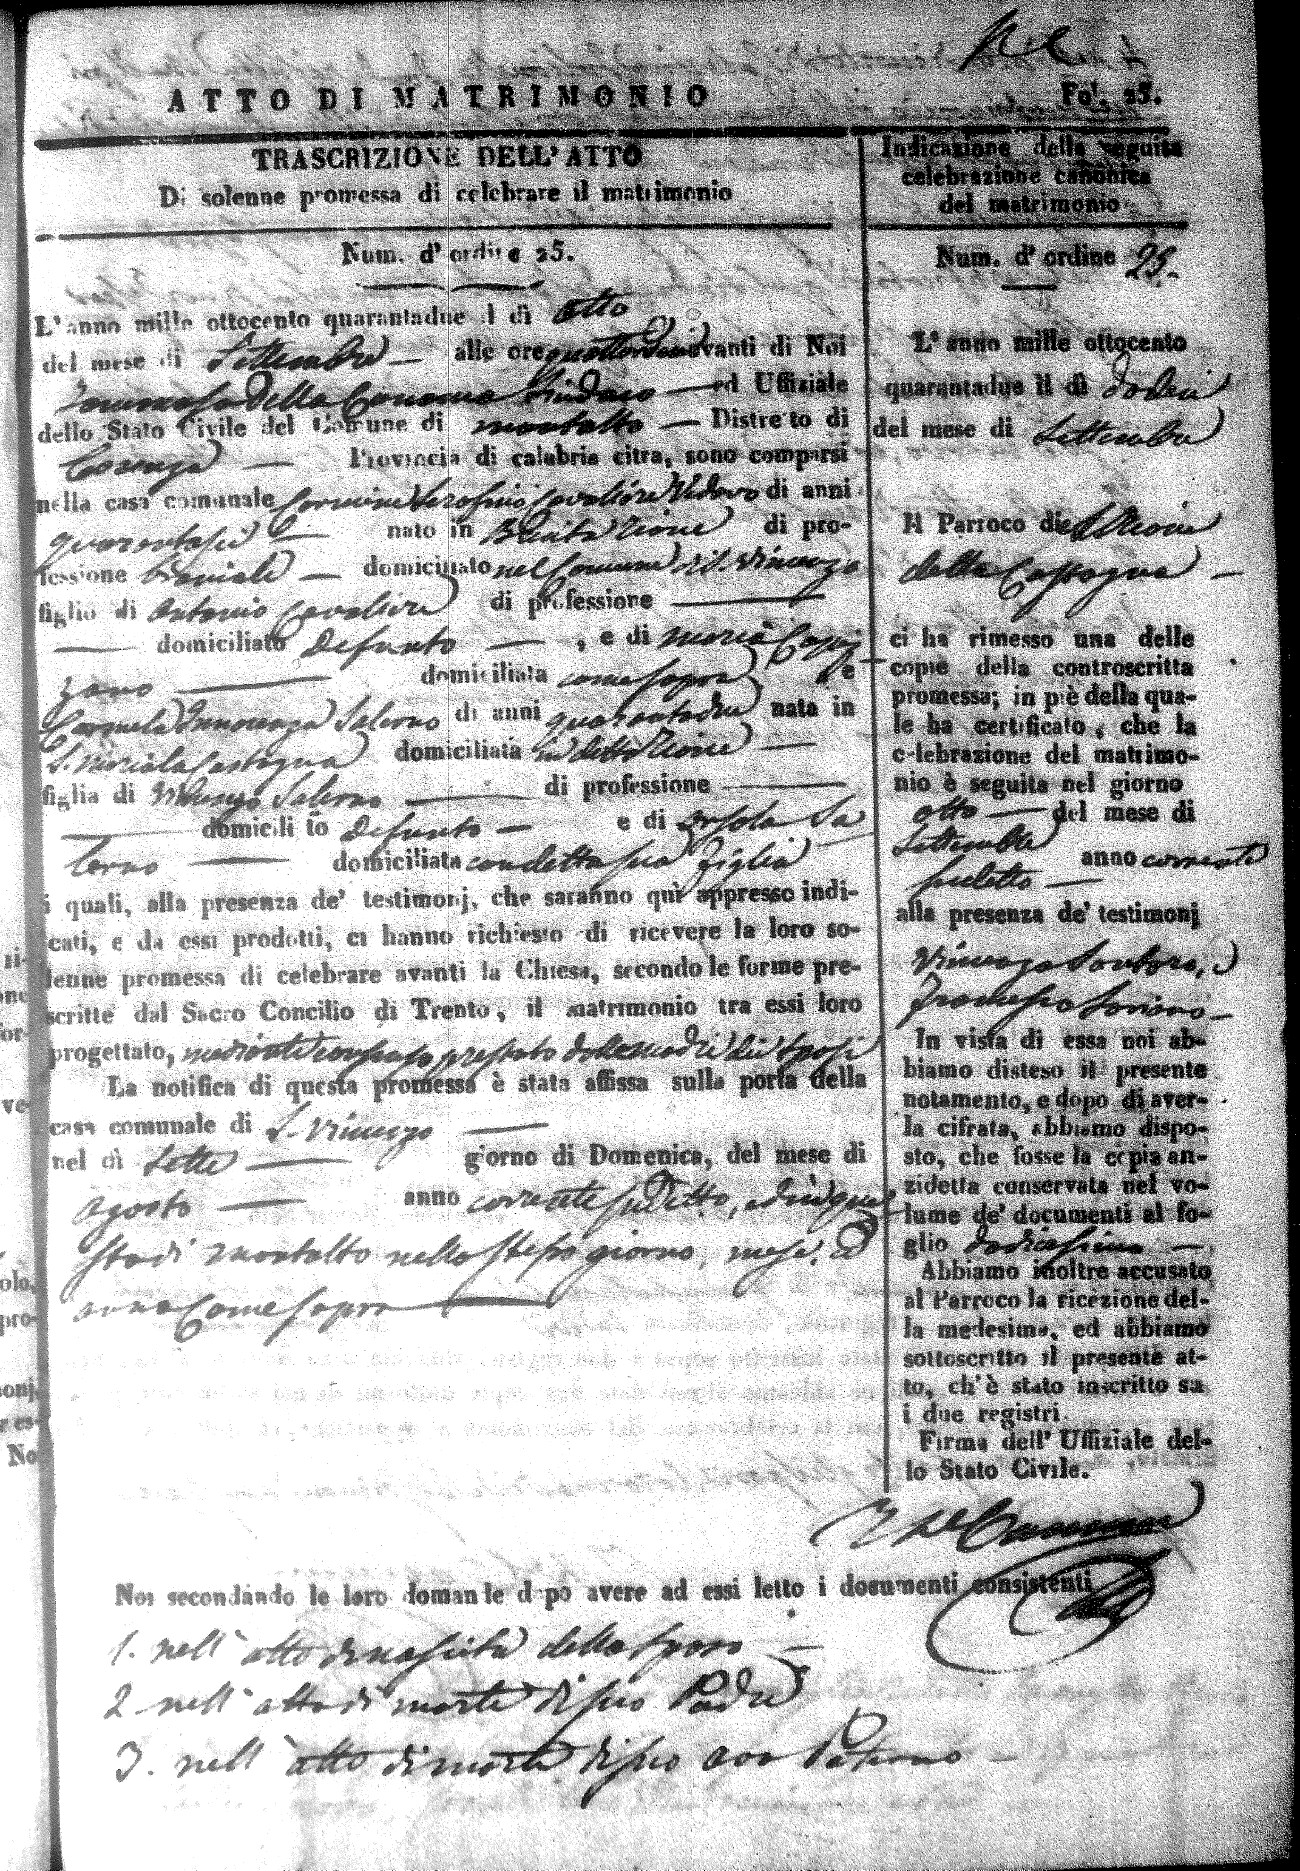 ATTO DI MATRIMONIO
Fol. 25.
TRASCRIZIONE DELL'ATTO
Di solenne promessa di celebrare il matrimonio
Num. d'ordine 25.
L'anno mille ottocento quarantadue il dì otto
del mese di Settembre alle ore quattordici avanti di Noi
Tommaso Della Sindaco ed Uffiziale
dello Stato Civile del Comune di Montalto Distretto di
Cosenza Provincia di calabria citra, sono comparsi
nella casa comunale Carmine Serafino Cavaliere Vedovo di anni
quarantasei nato in Rione di pro-
fessione bracciale domiciliato nel Comune di S. Vincenzo
figlio di Antonio Cavaliere di professione
domiciliato Defunto, e di Maria
zano domiciliata come sopra e
Carmela Innocenza Salerno di anni quarantadue nata in
S. Maria la Castagna domiciliata in detto Rione
figlia di Vincenzo Salerno di professione
domiciliato Defunto e di Orsola Sa
lerno domiciliata con detta sua figlia
i quali, alla presenza de' testimonj, che saranno quì appresso indi-
cati, e da essi prodotti, ci hanno richiesto di ricevere la loro so-
lenne promessa di celebrare avanti la Chiesa, secondo le forme pre-
scritte dal Sacro Concilio di Trento, il matrimonio tra essi loro
progettato, mediante consenso prestato dalle madri dei sposi
La notifica di questa promessa è stata affissa sulla porta della
casa comunale di S. Vincenzo
nel dì Sette giorno di Domenica, del mese di
Agosto anno corrente suddetto, ed in que
sta di Montalto nello stesso giorno, mese, ed
anno Come sopra
Indicazione della seguita
celebrazione canonica
del matrimonio
Num. d'ordine 25.
L'anno mille ottocento
quarantadue il dì dodici
del mese di Settembre
Il Parroco di Rione
della Castagna
ci ha rimesso una delle
copie della controscritta
promessa; in piè della qua-
le ha certificato, che la
celebrazione del matrimo-
nio è seguita nel giorno
otto del mese di
Settembre anno corrente
suddetto
alla presenza de' testimonj
Vincenzo Santoro, e
Francesco Soriano
In vista di essa noi ab-
biamo disteso il presente
notamento, e dopo di aver-
la cifrata, abbiamo dispo-
sto, che fosse la copia an-
zidetta conservata nel vo-
lume de' documenti al fo-
glio dodicesimo
Abbiamo inoltre accusato
al Parroco la ricezione del-
la medesima, ed abbiamo
sottoscritto il presente at-
to, ch'è stato inscritto su
i due registri.
Firma dell' Uffiziale del-
lo Stato Civile.
Noi secondando le loro domande dopo avere ad essi letto i documenti consistenti
1. nell'atto di nascita dello sposo
2 nell'atto di morte di suo Padre
3. nell'atto di morte di suo avo Paterno